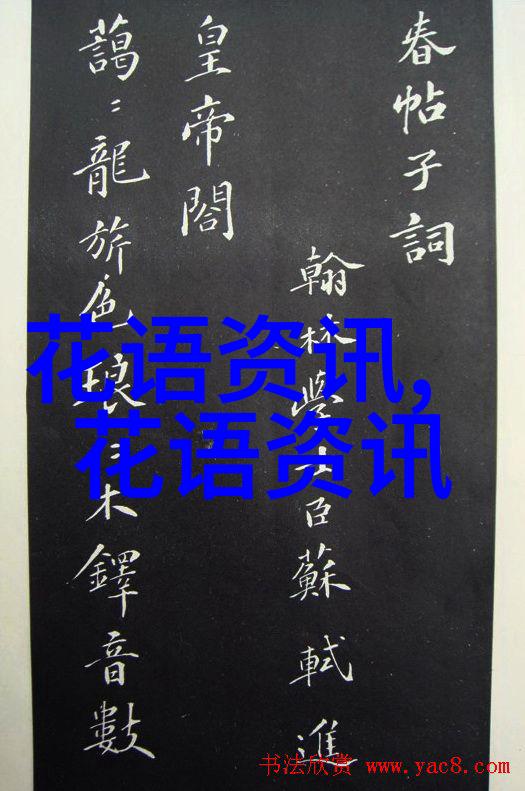 春帖子詞
翰林學士臣蘇軾進
皇帝閤
藹〻龍旂色琅〻木鐸音數
花语资讯,
花语资讯
书法欣赏 www.yac8.com